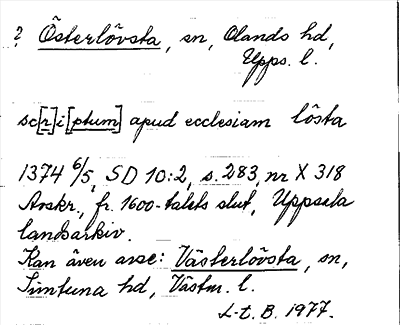 ? Österlövsta, sn, Olands hd,
Upps. l.
sc[r]i[ptum] apud ecclesiam lôsta
1374 6/5, SD 10:2, s. 283, nr X 318
Avskr., fr. 1600-talets slut, Uppsala
landsarkiv.
Kan även avse: Västerlövsta, sn,
Simtuna hd, Västm. l.
L-t. B. 1977.